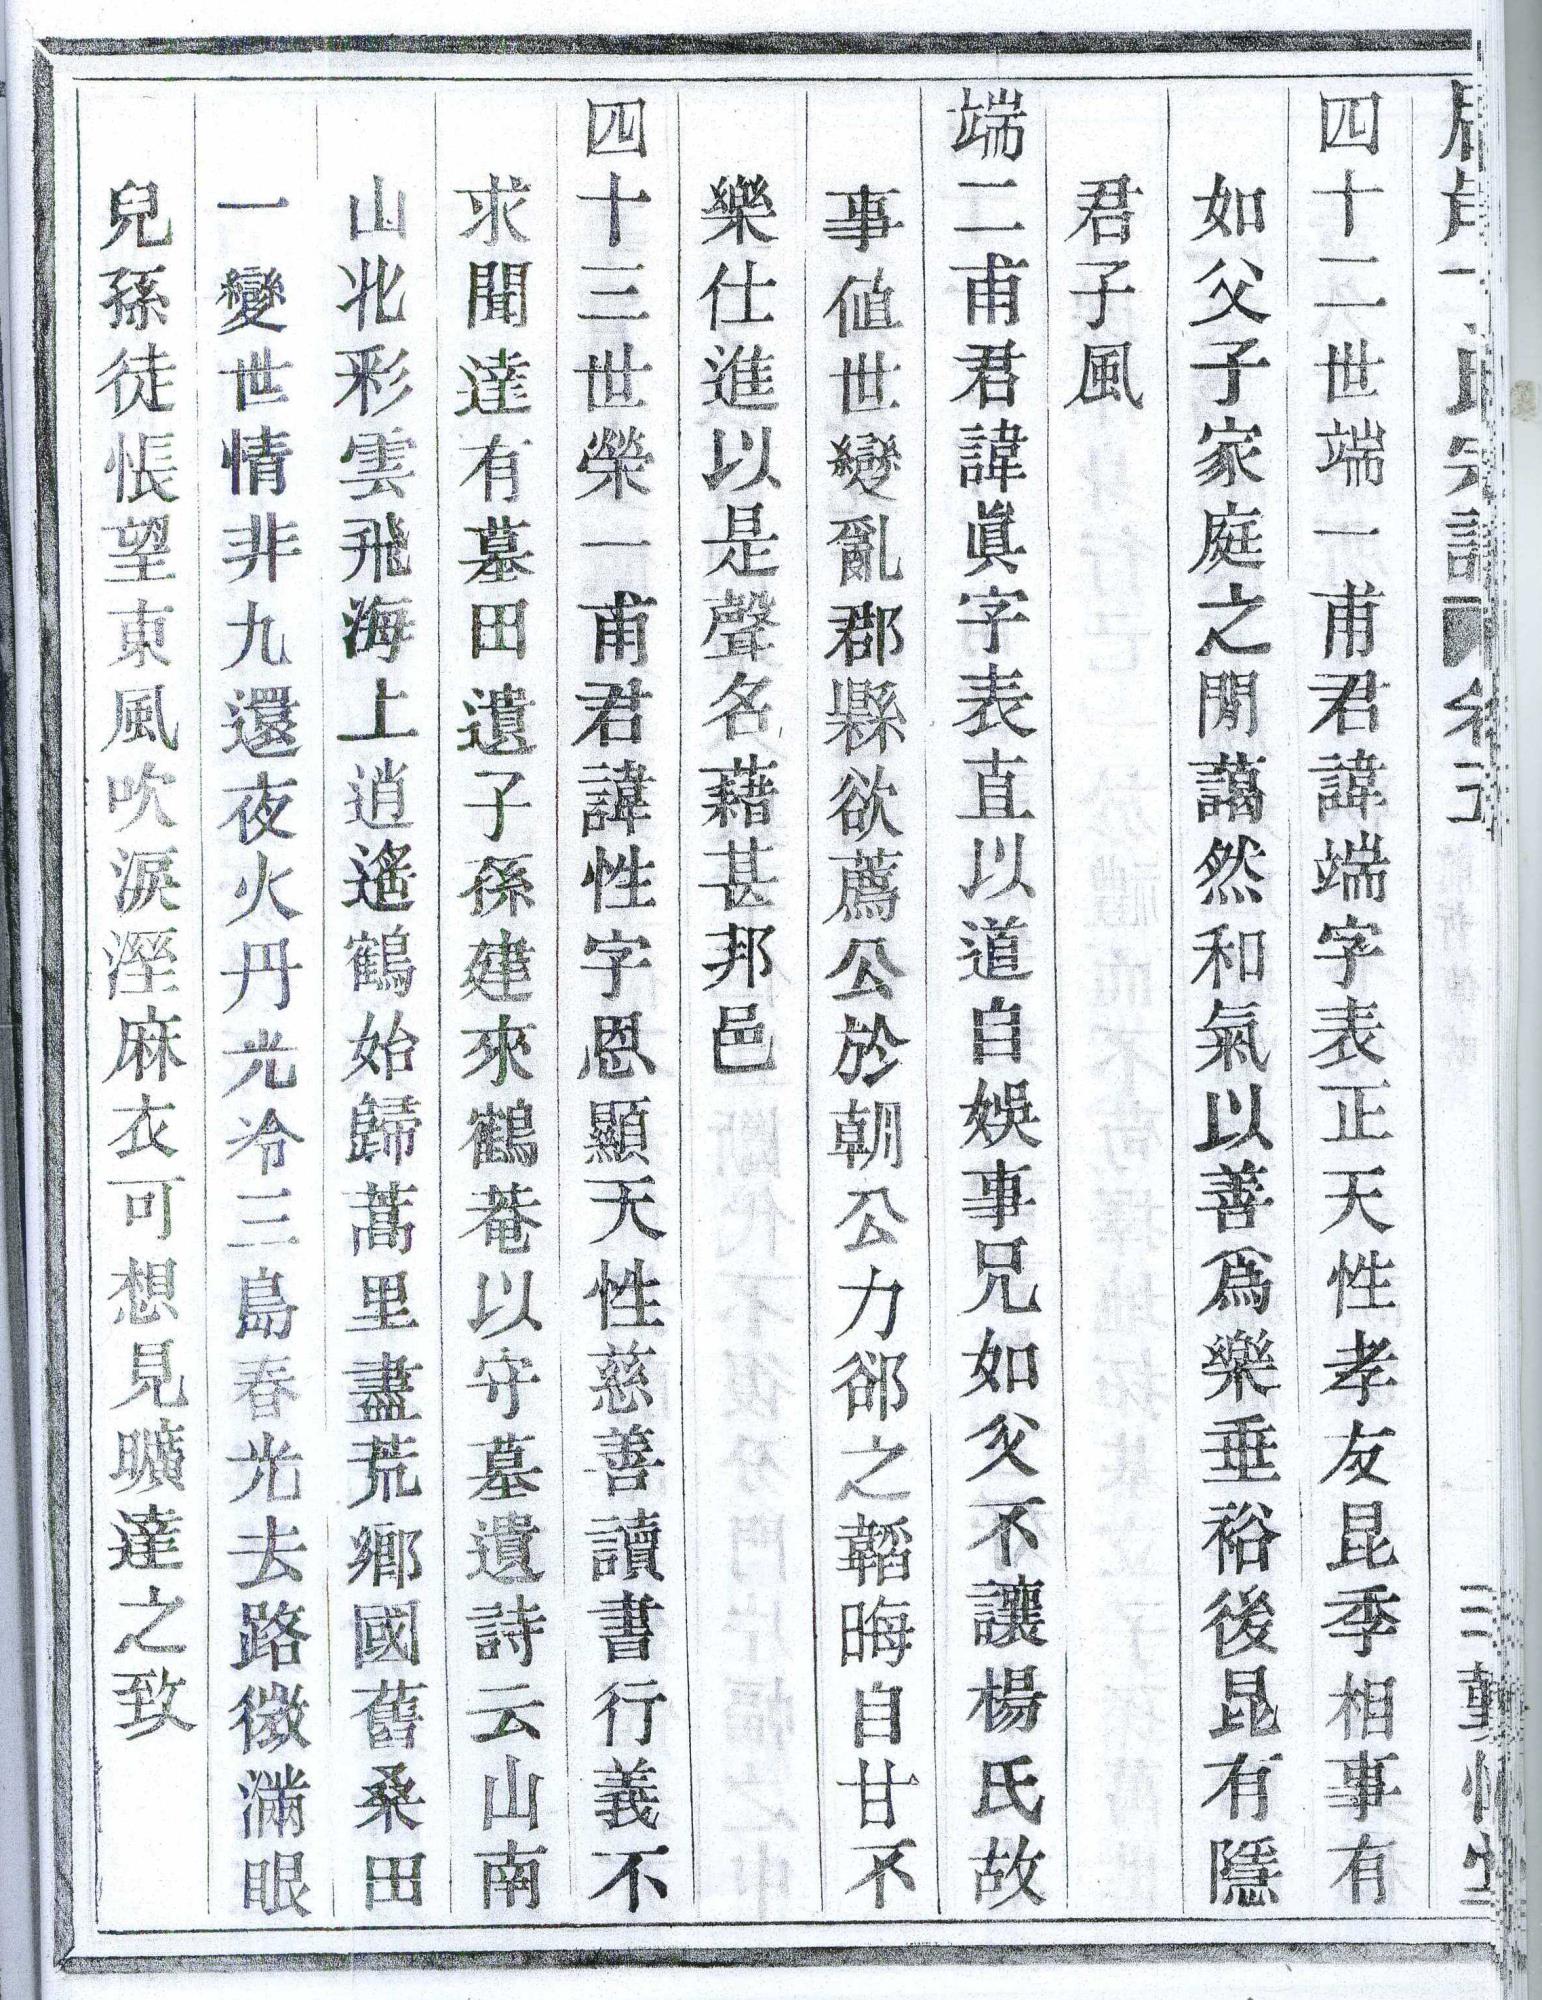 四十二世端一甫君諱端字表正天性孝友昆季相事有
如父子家庭之閒藹然和氣以善爲樂垂裕後昆有隱
君子風
端二甫君諱眞字表直以道自娛事兄如父不讓楊氏故
事値世變亂郡縣欲薦公於朝公力郤之韜晦自甘不
樂仕進以是聲名藉甚邦邑
四十三世榮一甫君諱性字恩顯天性慈善讀書行義不
求聞達有墓田遺子孫建來鶴菴以守墓遺詩云山南
山北彩雲飛海上逍遙鶴始歸蒿里盡荒鄉國舊桑田
一變世情非九還夜火丹光冷三島春光去路微滿眼
兒孫徒悵望東風吹淚溼麻衣可想見曠達之致